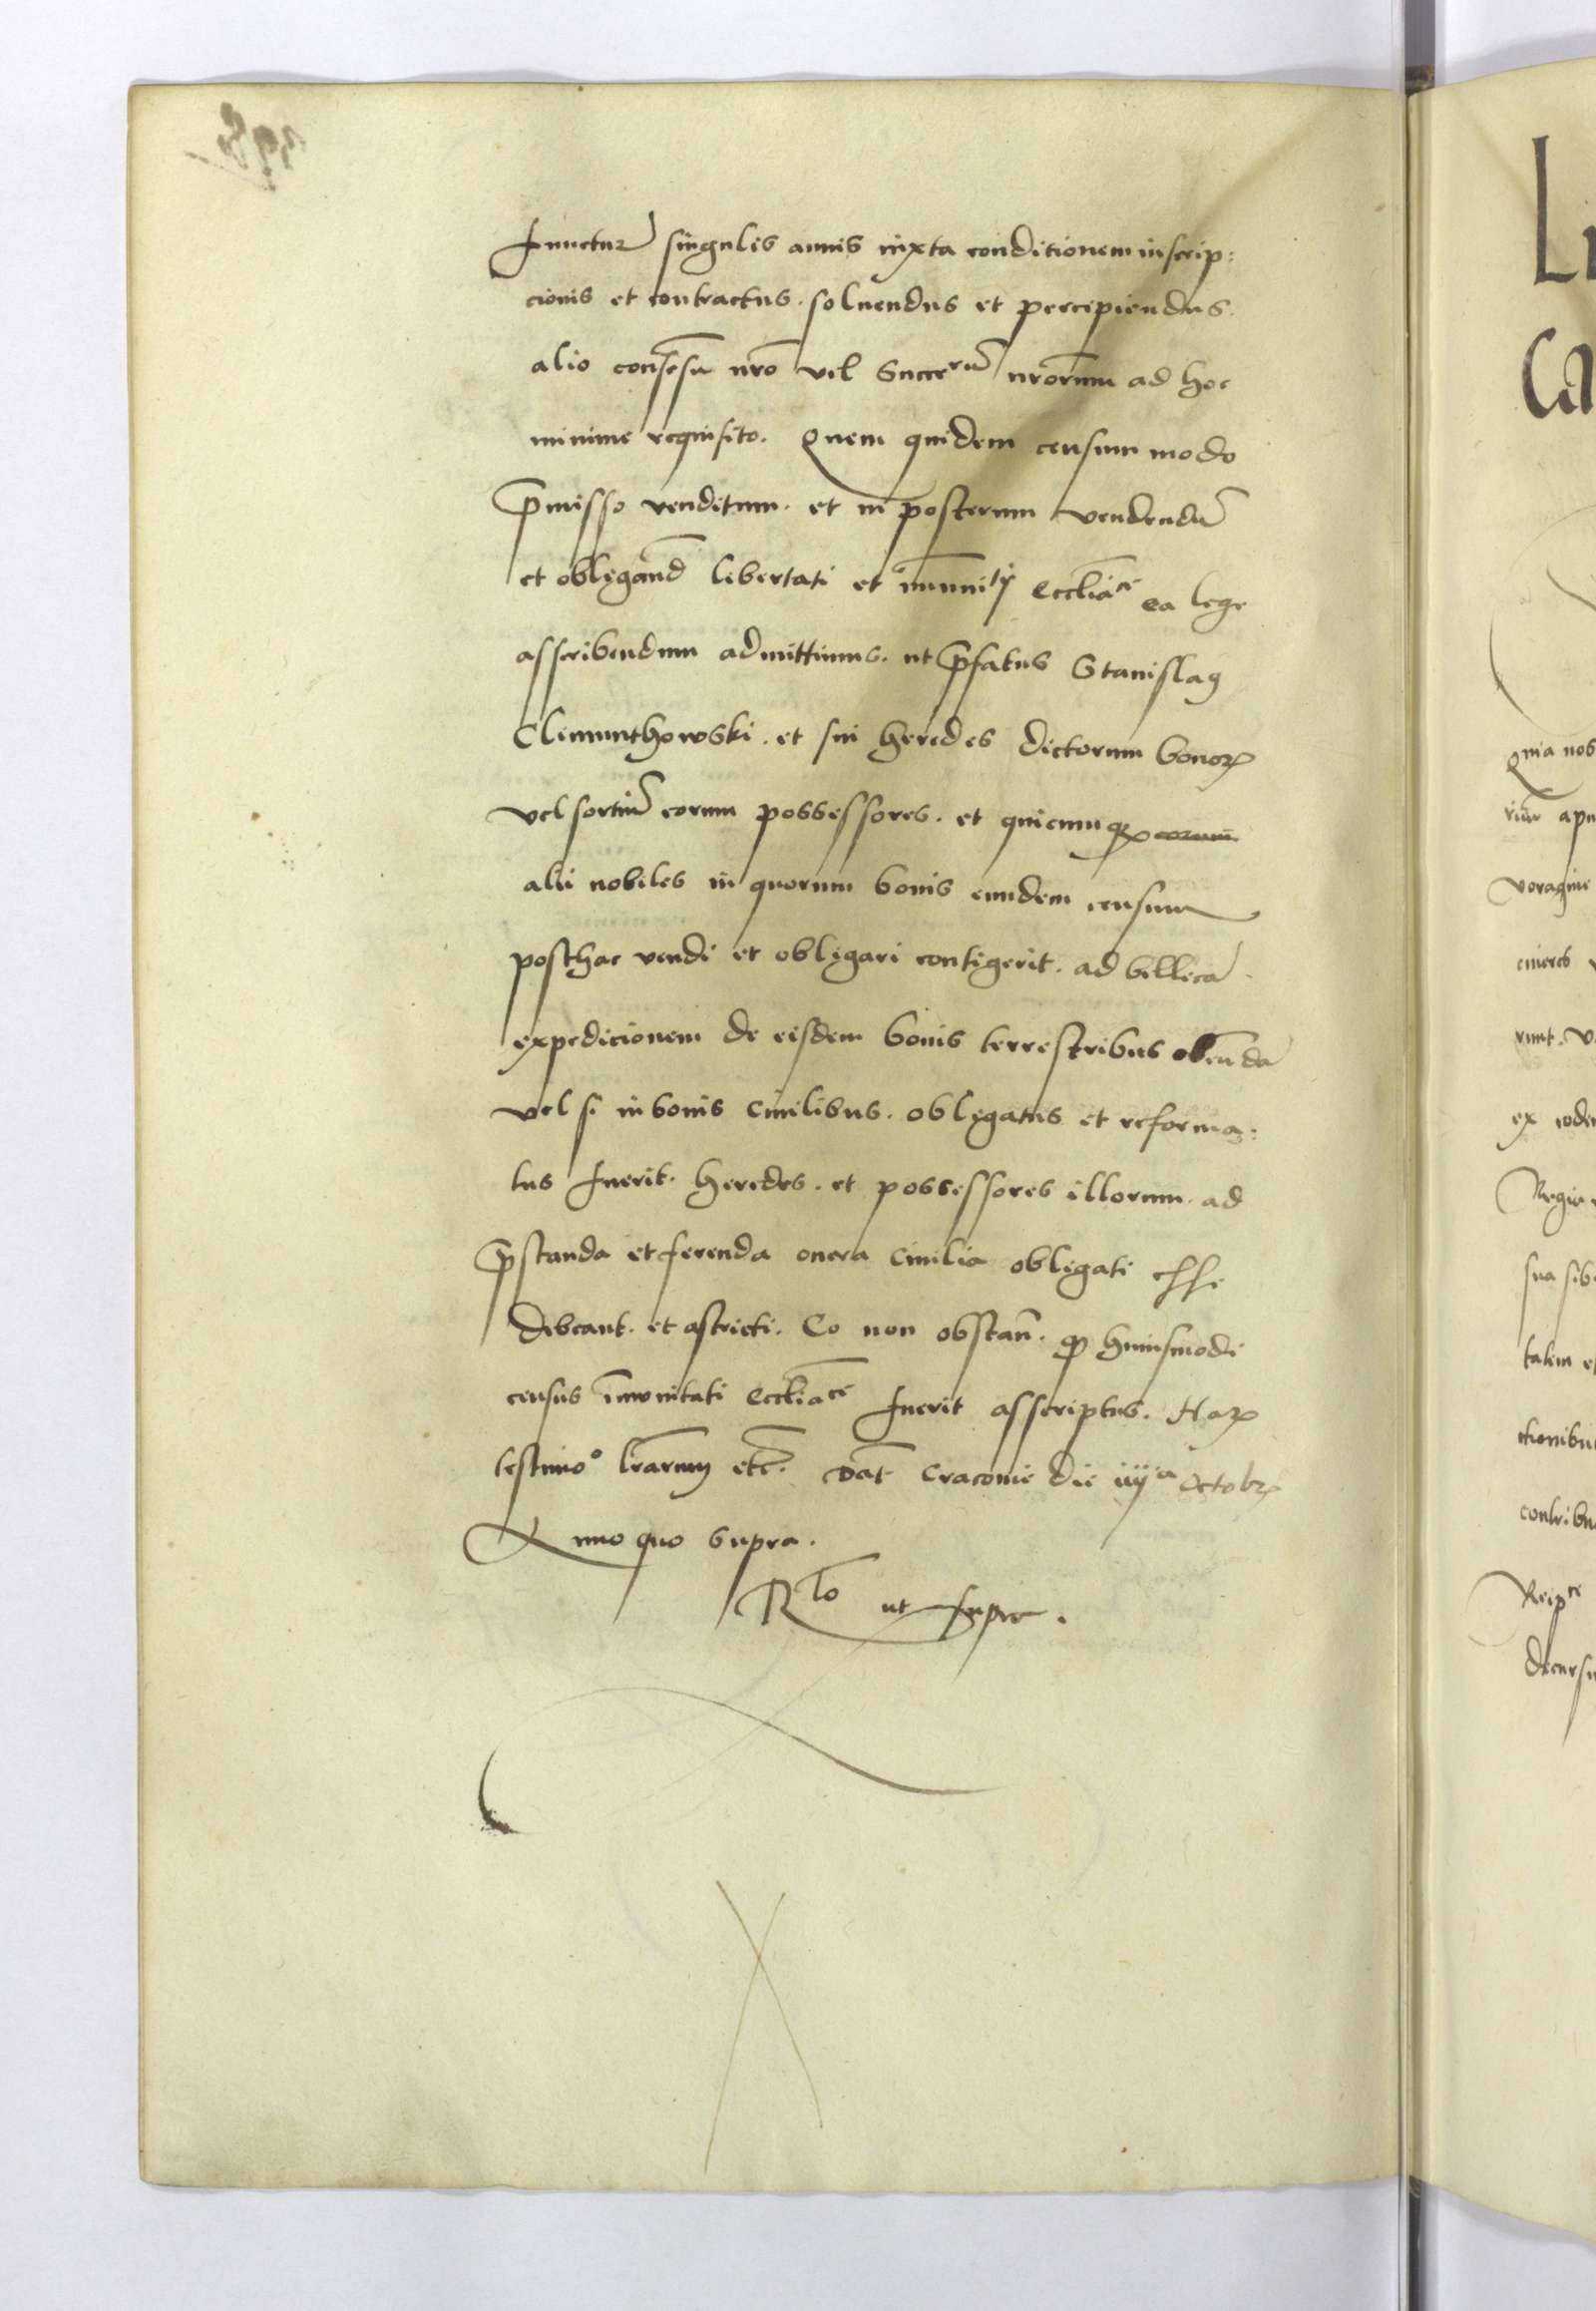 fuuctur singulis annis iuxta conditionem inscrip:
cionis et contractus . soluendus et percipiendus .
alio consẽsu nrõ vel Succerũ nrõrum ad hoc
minime requisito . Quem quidem censum modo
p̃misso venditum . et in posterum vendendũ
et obligand̃ libertati et im̃unitᵗⁱ eccl̃iaᶜᵉ ea lege
asscribendum admittimus . ut p̃fatus Stanislaꝰ
Clemunthowski . et sui heredes dictorum bonoꝝ
vel sortiũ eorum possessores . et quicumqꝫ
alii nobiles in quorum bonis eundem censum
posthac vendi et obligari contigerit . ad bellicã .
expedicionem de eisdem bonis terrestribus obeũdã
vel si in bonis Ciuilibus . obligatus et reforma:
tus fuerit . heredes . et possessores illorum . ad
p̃standa et ferenda onera Ciuilia obligati esse
debeant . et astricti . Eo non obstañ . ꝙ huiusmodi
census im̃unitati eccl̃iaᶜᵉ fuerit asscriptus . Haꝝ
testimoº lr̃arum etc̃ . Dat̃ Cracouie die iiijᵃ Octobꝝ
Anno quo supra .
Rˡᵒ ut supra .
Li
Ca
Quia nos
apu
voragine
cineres
runt .
ex eode
Regie
sua sib
talem e
ctionibu
contribu
Reipᶜᵉ
decursu